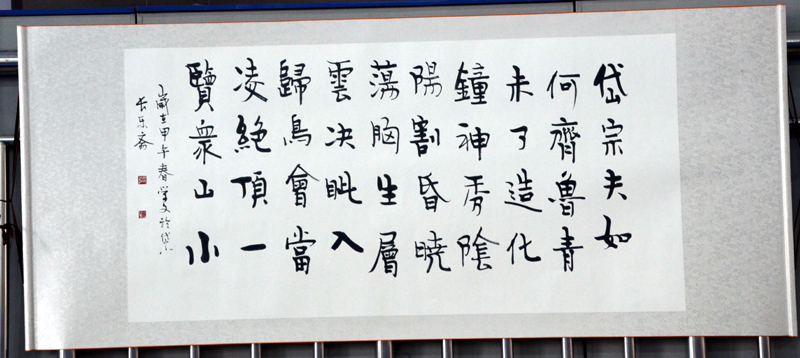 岱宗夫如
何齊魯青
未了造化
鐘神秀陰
陽割昏曉
蕩胸生層
雲决眦入
歸鳥會當
凌絕頂一
覽衆山小
嵗在甲午春学文於
长乐斋